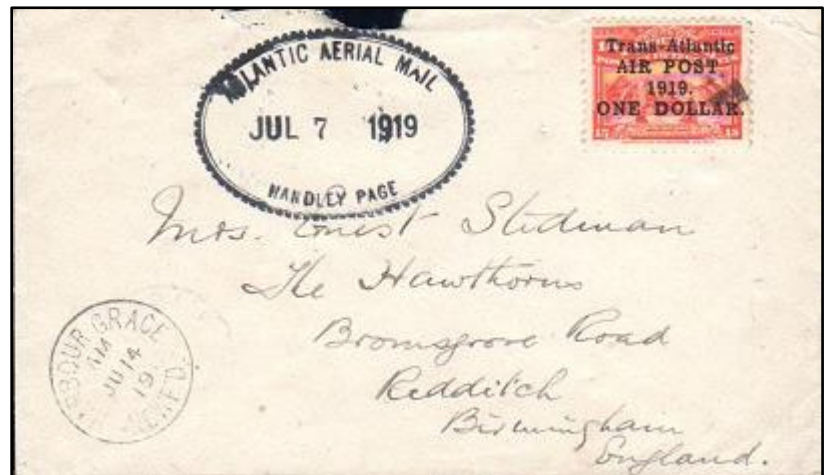 ATLANTIC AERIAL MAIL
JUL 7 1919
HANDLEY PAGE
Trans-Atlantic
AIR POST
1919.
ONE DOLLAR.
Mrs. Ernest Stedman
The Hawthorns
Bromsgrove Road
Redditch
Birmingham
England.
HARBOUR GRACE
AM
JU 14
19
NEWF'D